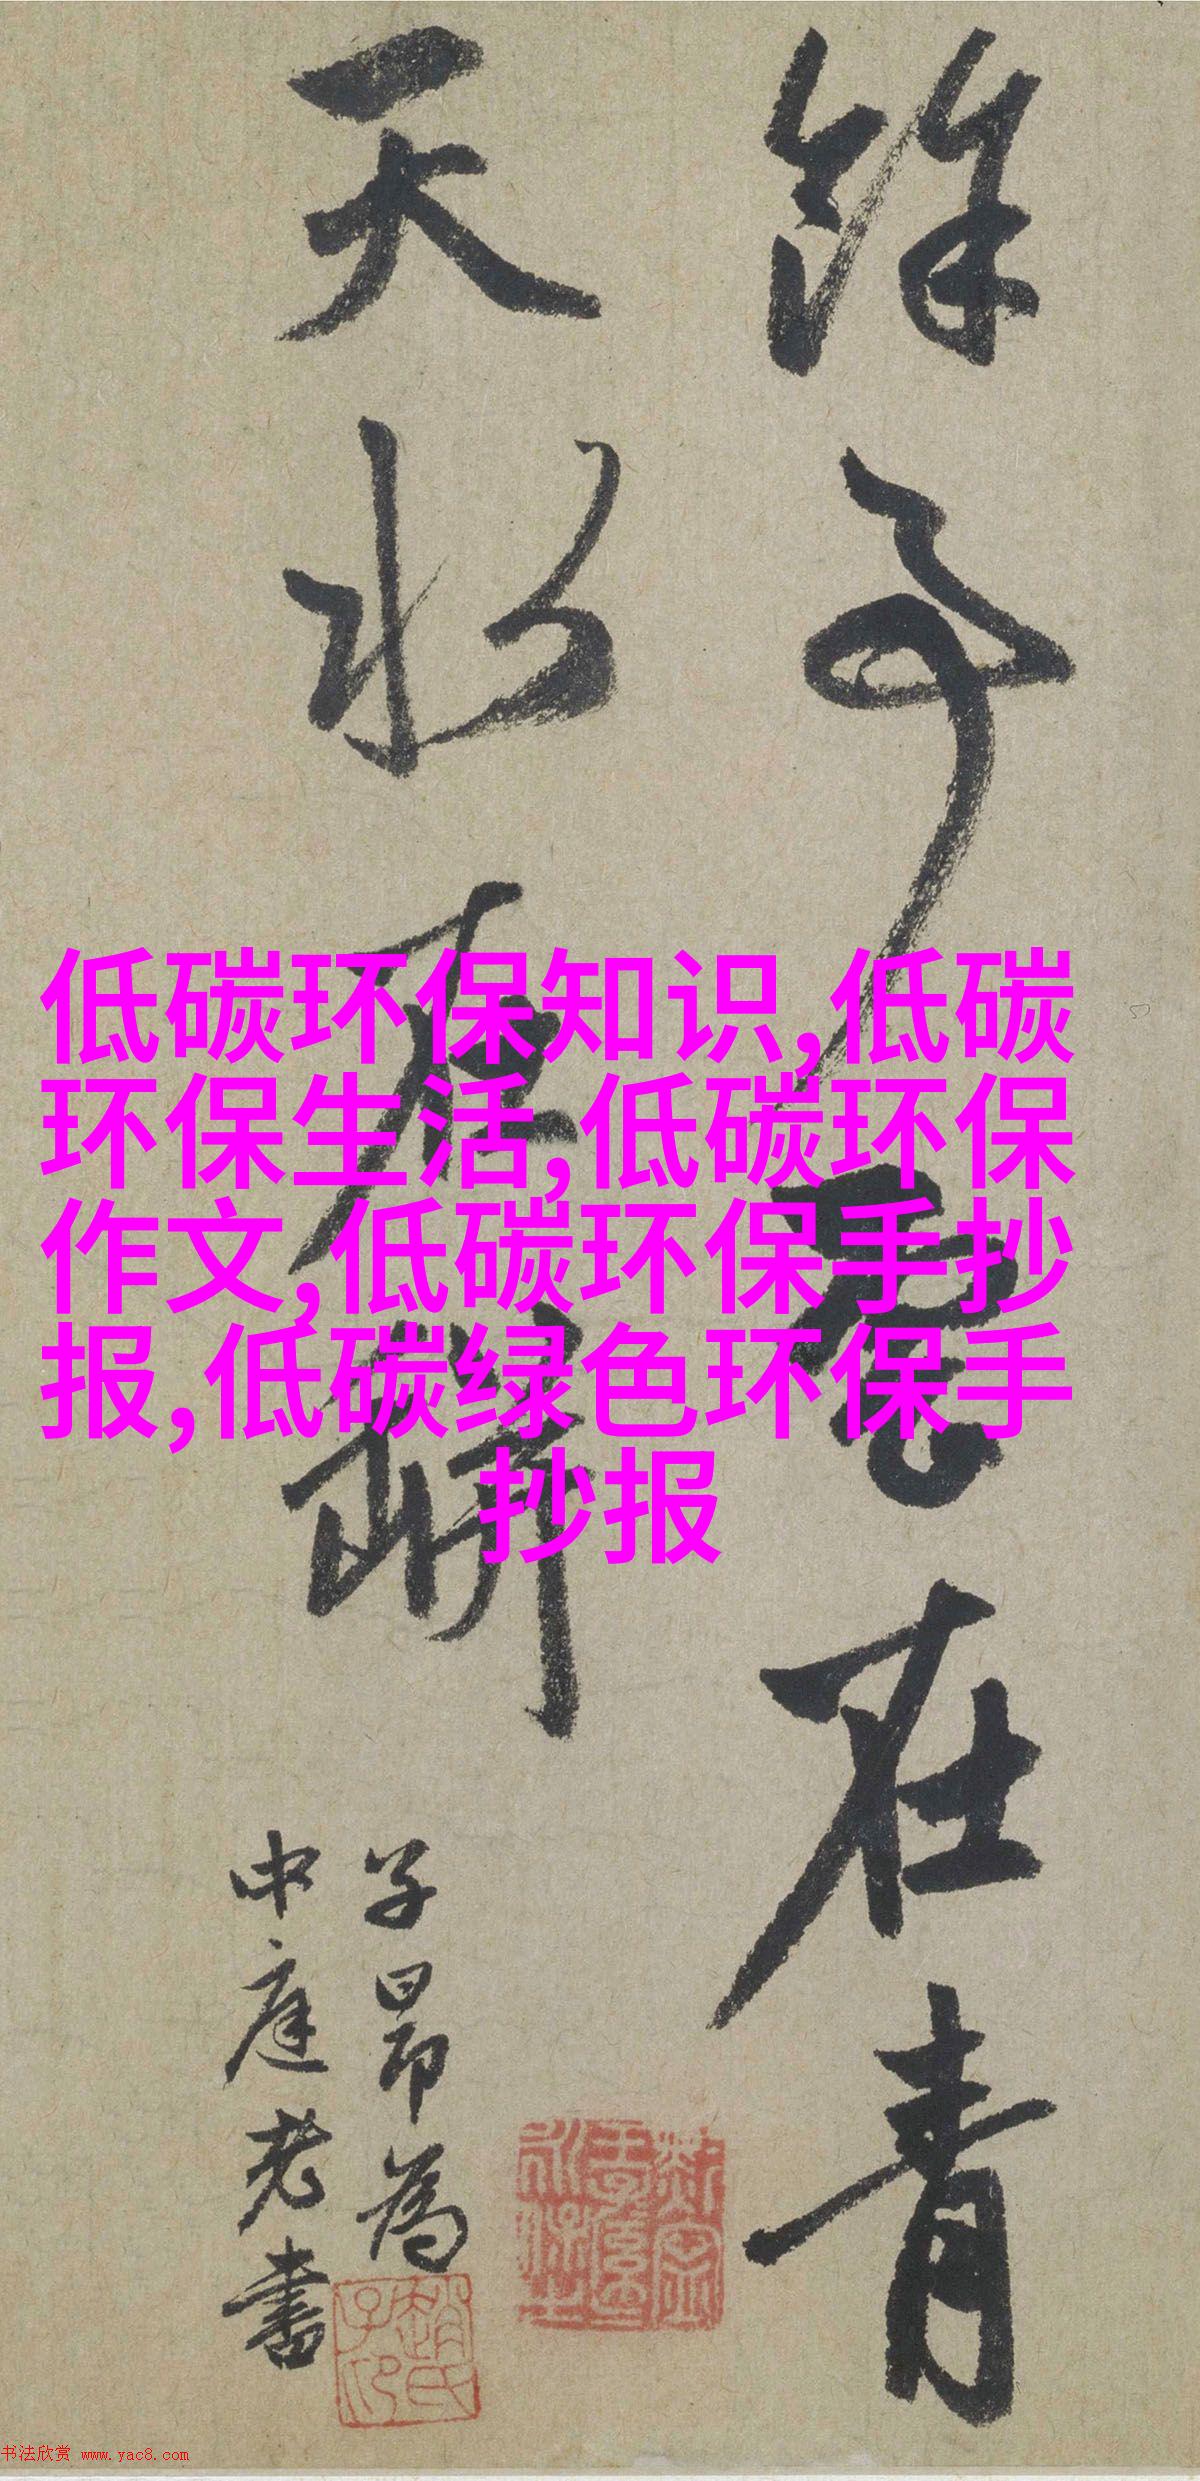 餘事雲在青
天水在缾
子昂為
中庭老書
低碳环保知识,低碳
环保生活,低碳环保
作文,低碳环保手抄
报,低碳绿色环保手
抄报
书法欣赏 www.yac8.com